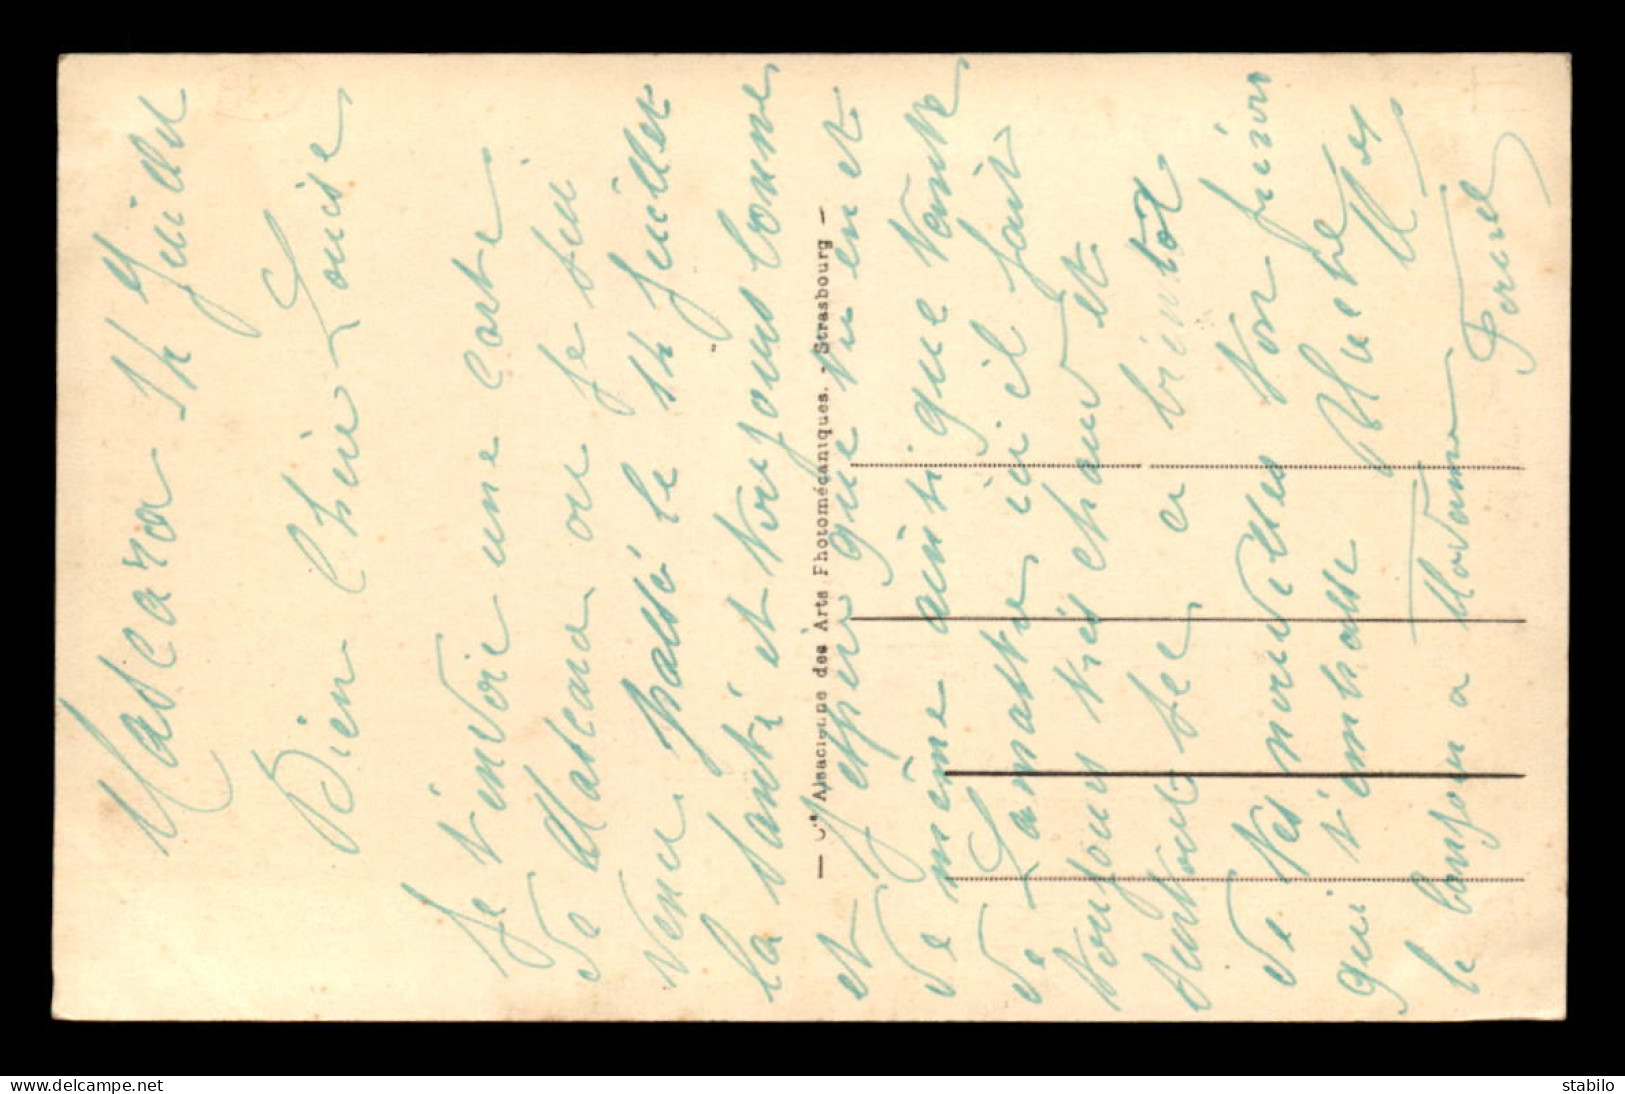 Mascara 14 Juillet
Bien Chère Louise
Je t'envoie une carte
de Mascara ou je sui
venu passé le 14 Juillet
la santé et toujours bonne
et j'espère que tu en et
de même ainsi que tante
de ici il fait
toujours très chaud et
surtout a bientôt
de tes nouvelles ton
qui t'embrasse
le bonjour a Madame
— Cie Alsacienne des Arts Photomécaniques. - Strasbourg —
delcampe.net
stabilo